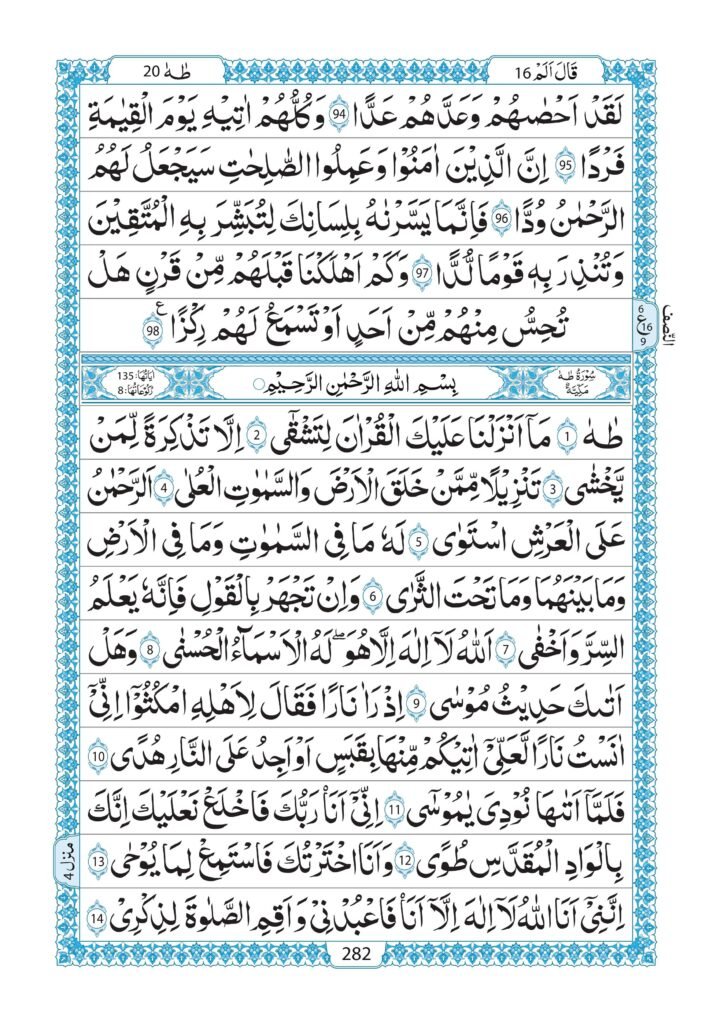 قَالَ اَلَمْ 16
طٰهٰ 20
لَقَدْ اَحْصٰىهُمْ وَعَدَّهُمْ عَدًّا 94 وَكُلُّهُمْ اٰتِيْهِ يَوْمَ الْقِيٰمَةِ
فَرْدًا 95 اِنَّ الَّذِيْنَ اٰمَنُوْا وَعَمِلُوا الصّٰلِحٰتِ سَيَجْعَلُ لَهُمُ
الرَّحْمٰنُ وُدًّا 96 فَاِنَّمَا يَسَّرْنٰهُ بِلِسَانِكَ لِتُبَشِّرَ بِهِ الْمُتَّقِيْنَ
وَتُنْذِرَ بِهٖ قَوْمًا لُّدًّا 97 وَكَمْ اَهْلَكْنَا قَبْلَهُمْ مِّنْ قَرْنٍ هَلْ
تُحِسُّ مِنْهُمْ مِّنْ اَحَدٍ اَوْ تَسْمَعُ لَهُمْ رِكْزًا 98 ع
6
ع 16
9
النّصف
سُوْرَةُ طٰهٰ
مَكِّيَّةٌ
بِسْمِ اللهِ الرَّحْمٰنِ الرَّحِيْمِ
اٰيَاتُهَا: 135
رُكُوْعَاتُهَا: 8
طٰهٰ 1 مَاۤ اَنْزَلْنَا عَلَيْكَ الْقُرْاٰنَ لِتَشْقٰۤى 2 اِلَّا تَذْكِرَةً لِّمَنْ
يَّخْشٰى 3 تَنْزِيْلًا مِّمَّنْ خَلَقَ الْاَرْضَ وَالسَّمٰوٰتِ الْعُلٰى 4 اَلرَّحْمٰنُ
عَلَى الْعَرْشِ اسْتَوٰى 5 لَهٗ مَا فِى السَّمٰوٰتِ وَمَا فِى الْاَرْضِ
وَمَا بَيْنَهُمَا وَمَا تَحْتَ الثَّرٰى 6 وَاِنْ تَجْهَرْ بِالْقَوْلِ فَاِنَّهٗ يَعْلَمُ
السِّرَّ وَاَخْفٰى 7 اَللهُ لَاۤ اِلٰهَ اِلَّا هُوَ ؕ لَهُ الْاَسْمَآءُ الْحُسْنٰى 8 وَهَلْ
اَتٰىكَ حَدِيْثُ مُوْسٰى 9 اِذْ رَاٰ نَارًا فَقَالَ لِاَهْلِهِ امْكُثُوْۤا اِنِّىْۤ
اٰنَسْتُ نَارًا لَّعَلِّىْۤ اٰتِيْكُمْ مِّنْهَا بِقَبَسٍ اَوْ اَجِدُ عَلَى النَّارِ هُدًى 10
فَلَمَّاۤ اَتٰىهَا نُوْدِىَ يٰمُوْسٰى 11 اِنِّىْۤ اَنَا رَبُّكَ فَاخْلَعْ نَعْلَيْكَ اِنَّكَ
بِالْوَادِ الْمُقَدَّسِ طُوًى 12 وَاَنَا اخْتَرْتُكَ فَاسْتَمِعْ لِمَا يُوْحٰى 13
اِنَّنِىْۤ اَنَا اللهُ لَاۤ اِلٰهَ اِلَّاۤ اَنَا فَاعْبُدْنِىْ وَاَقِمِ الصَّلٰوةَ لِذِكْرِىْ 14
منزل 4
282